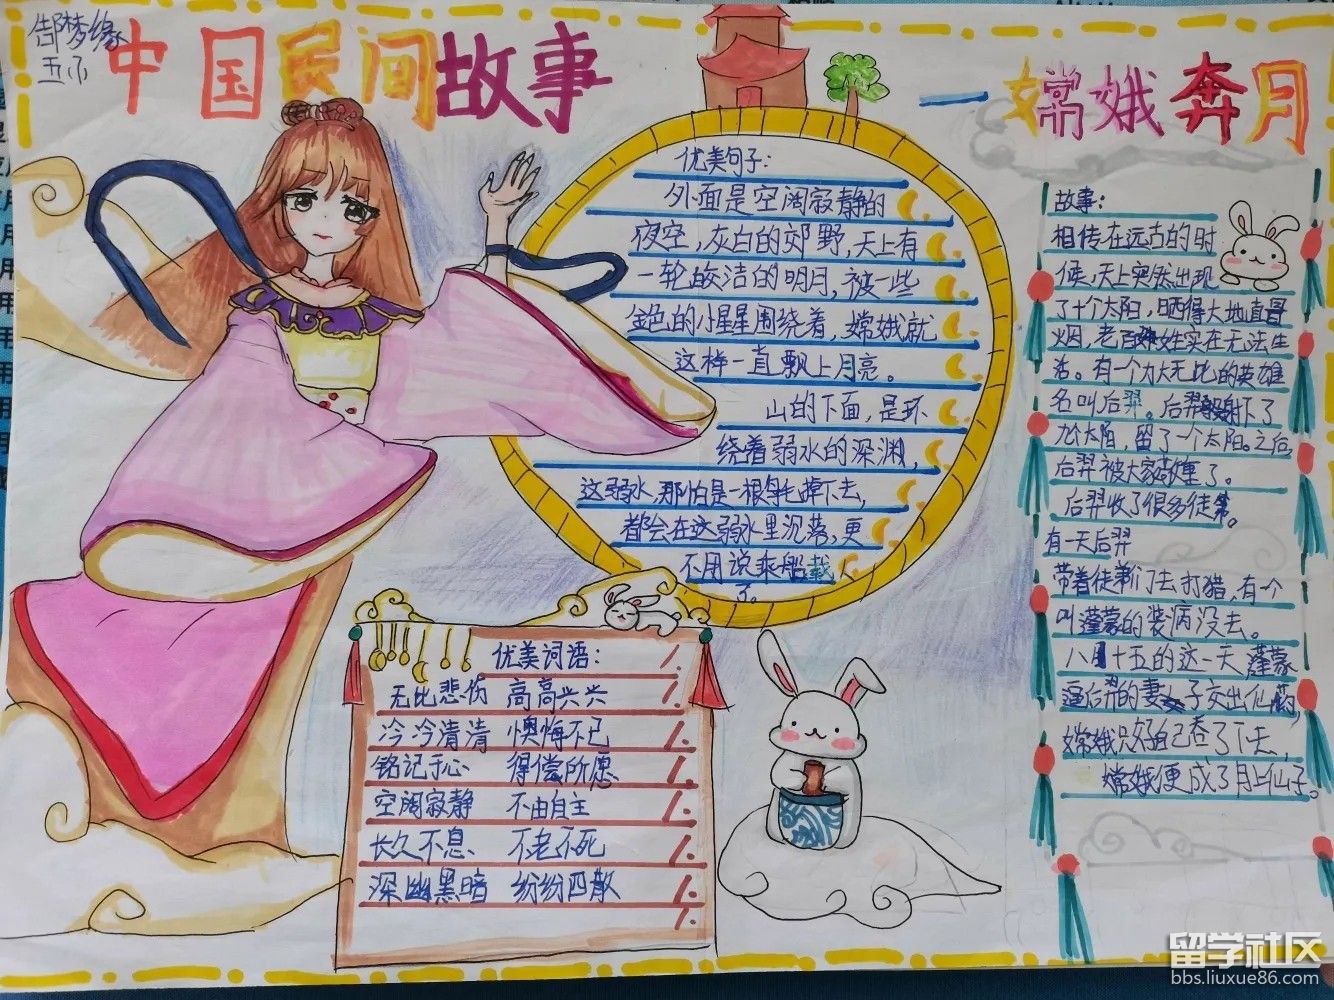 郜梦缘
中国民间故事
一嫦娥奔月
优美句子：
外面是空阔寂静的
夜空，灰白的郊野，天上有
一轮皎洁的明月，被一些
金色的小星星围绕着，嫦娥就
这样一直飘上月亮。
山的下面，是环
绕着弱水的深渊，
这弱水，那怕是一根羽毛掉下去，
都会在这弱水里沉落，更
不用说乘船载人
了。
优美词语：
无比悲伤 高高兴兴
冷冷清清 懊悔不已
铭记于心 得偿所愿
空阔寂静 不由自主
长久不息 不老不死
深幽黑暗 纷纷四散
故事：
相传在远古的时
候，天上突然出现
了十个太阳，晒得大地直冒
烟，老百姓实在无法生
活。有一个力大无比的英雄
名叫后羿。后羿射下了
九个太阳，留了一个太阳。之后，
后羿被大家敬重了。
后羿收了很多徒弟。
有一天后羿
带着徒弟们去打猎，有一个
叫蓬蒙的装病没去。
八月十五的这一天，蓬蒙
逼后羿的妻子交出仙药，
嫦娥只好自己吞了下去，
嫦娥便成了月上仙子。
留学社区
bbs.liuxue86.com